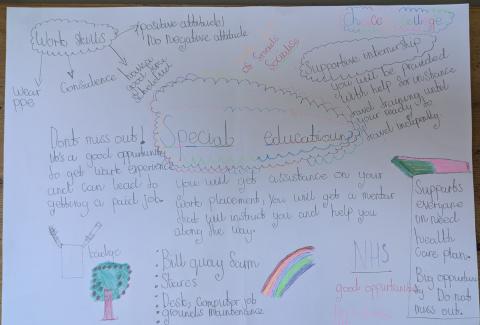 Work Skills
(positive attitude)
No negative attitude
Wear
ppe
Confidence
good
Choice College
Supportive internship
you will be provided
with help for instance
travel training until
your ready to
travel indepently
Special educations
Dont miss out!
its a good oppurtunity
to get work experience
and can lead to
getting a paid job.
You will get assistance on your
work placement, you will get a mentor
that will instruct you and help you
along the way.
Supports
everyone
in need
health
care plan.
Big oppurtun
ity Do not
miss out.
badge
• Bill quay farm
• Stores
• Desk, computer job
• grounds maintenance
NHS
good oppurtunity